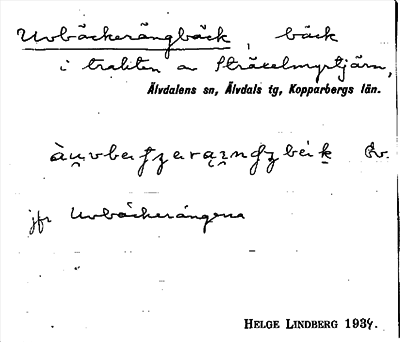 Uvbäckerängbäck, bäck
i trakten av Sträkelmyrtjärn,
Älvdalens sn, Älvdals tg, Kopparbergs län.
jfr Uvbäckerängena
HELGE LINDBERG 1934.